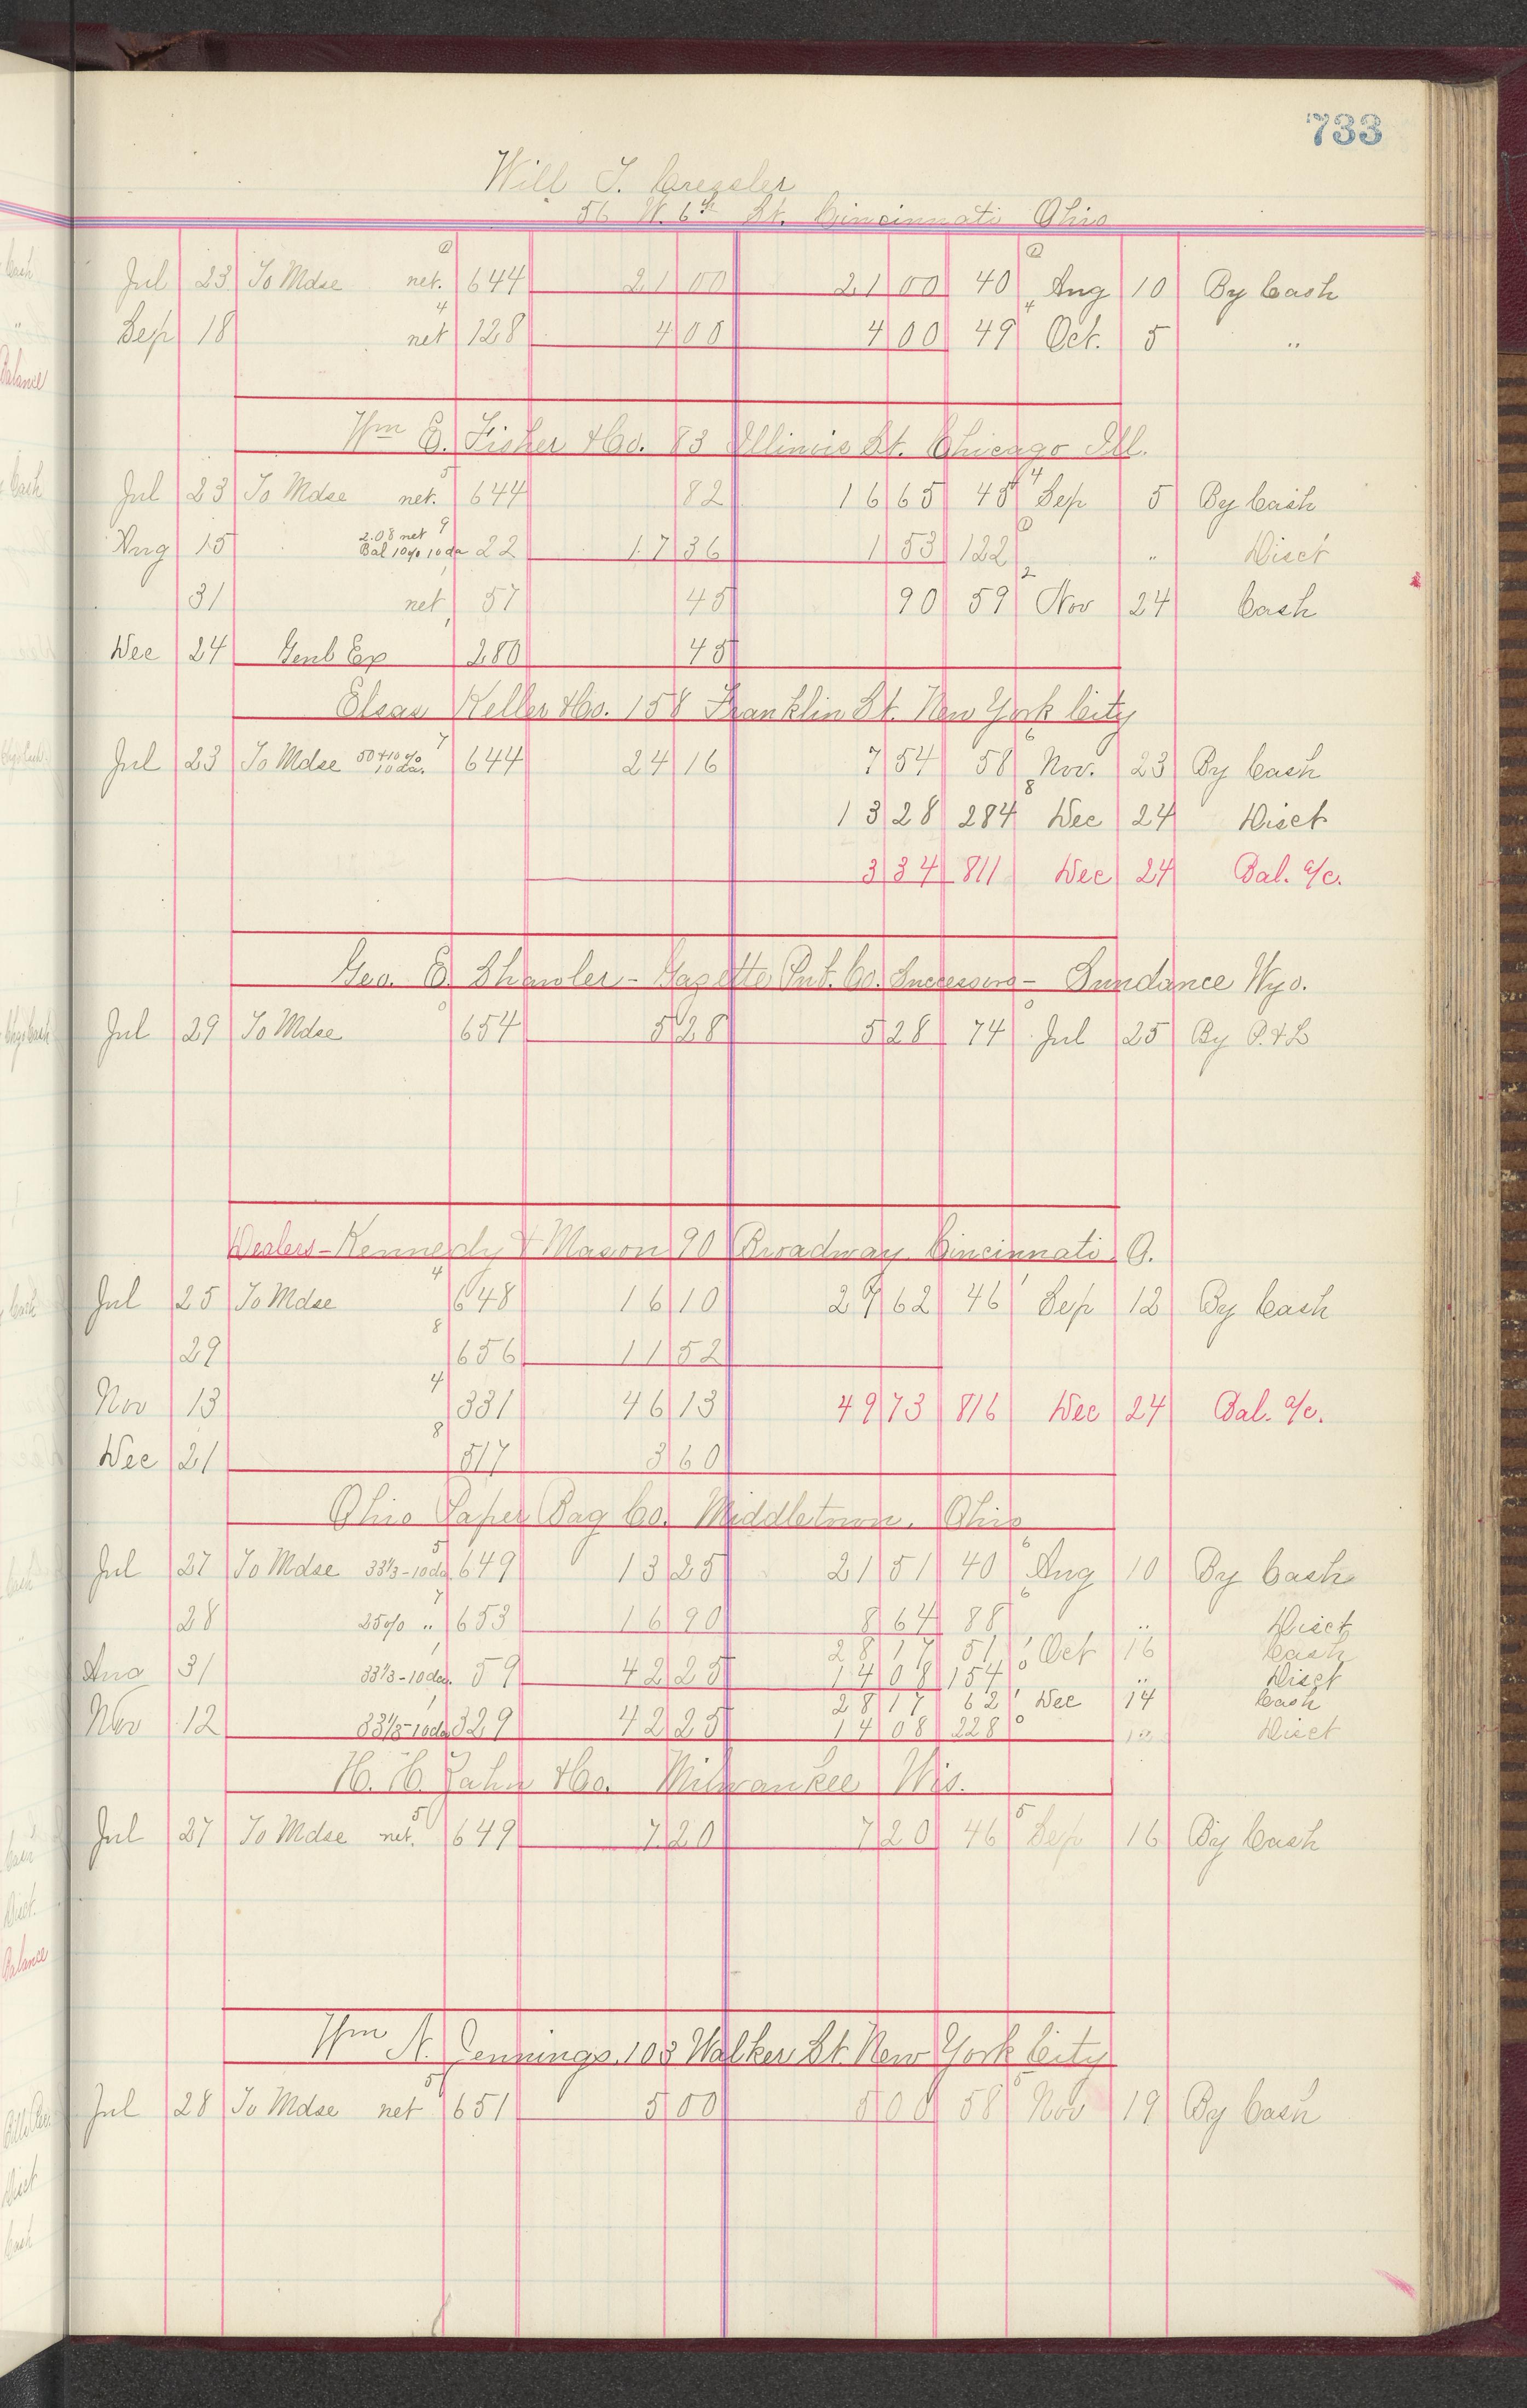 733
Will T. Cressler
56 W. 6th St. Cincinnati Ohio
Jul 23 To Mdse net. 644 21 00 21 00 40 Aug 10 By Cash
Sep 18 net 128 4 00 4 00 49 Oct. 5 "
Wm E. Fisher & Co. 83 Illinois St. Chicago Ill.
Jul 23 To Mdse net. 644 82 16 65 45 Sep 5 By Cash
Aug 15 2.08 net Bal 10% 10 da 22 17 36 1 53 122 " Disct
31 net 57 45 90 59 Nov 24 Cash
Dec 24 Genl Ex 280 45
Elsas Keller & Co. 158 Franklin St. New York City
Jul 23 To Mdse 50+10% 10 da. 644 24 16 7 54 58 Nov. 23 By Cash
13 28 284 Dec 24 Disct
3 34 811 Dec 24 Bal. a/c.
Geo. E. Shawler - Gazette Pub. Co. Successors - Sundance Wyo.
Jul 29 To Mdse 654 5 28 5 28 74 Jul 25 By P. & L
Dealers - Kennedy & Mason 90 Broadway Cincinnati O.
Jul 25 To Mdse 648 16 10 27 62 46 Sep 12 By Cash
29 656 11 52
Nov 13 331 46 13 49 73 816 Dec 24 Bal. a/c.
Dec 21 517 3 60
Ohio Paper Bag Co. Middletown. Ohio
Jul 27 To Mdse 33 1/3 - 10 da 649 13 25 21 51 40 Aug 10 By Cash
28 25% " 653 16 90 8 64 88 " Disct
28 17 51 Oct 16 Cash
Aug 31 33 1/3 - 10 da. 59 42 25 14 08 154 " Disct
28 17 62 Dec 14 Cash
Nov 12 33 1/3 - 10 da 329 42 25 14 08 228 " Disct
H. H. Zahn & Co. Milwaukee Wis.
Jul 27 To Mdse net. 649 7 20 7 20 46 Sep 16 By Cash
Wm N. Jennings. 103 Walker St. New York City
Jul 28 To Mdse net 651 5 00 5 00 58 Nov 19 By Cash